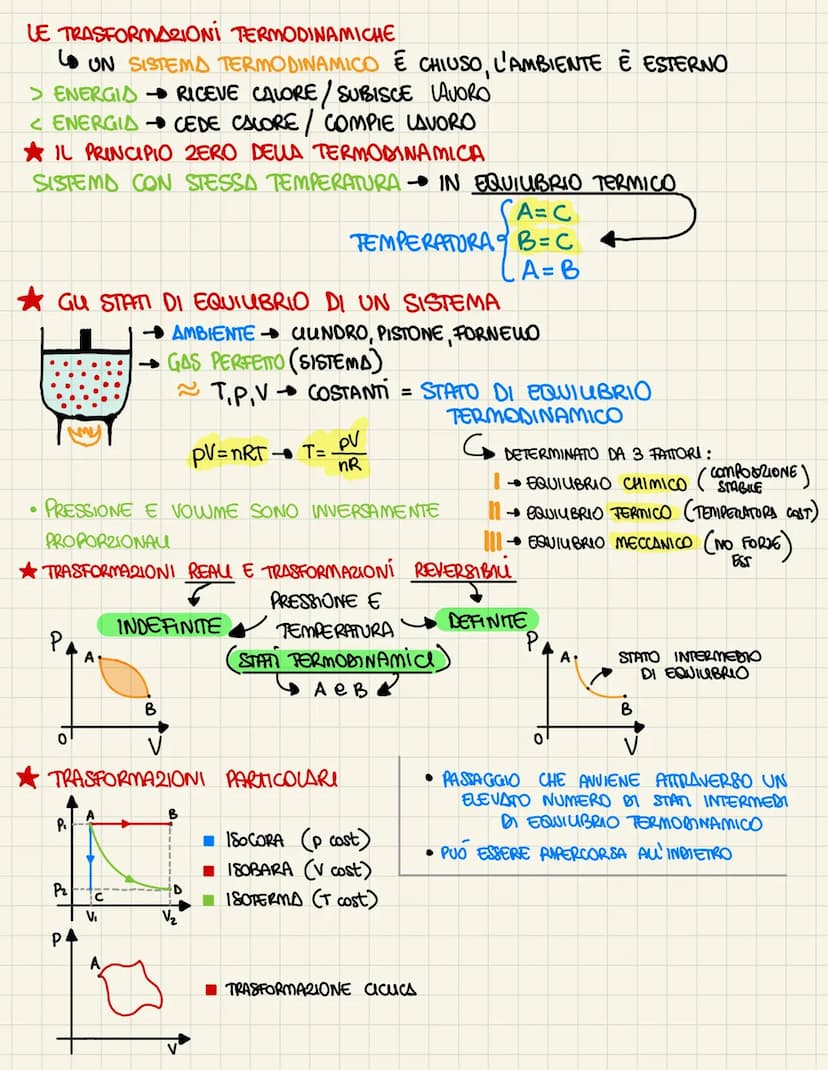 LE TRASFORMAZIONI TERMODINAMICHE
↳ UN SISTEMA TERMODINAMICO È CHIUSO, L'AMBIENTE È ESTERNO
> ENERGIA → RICEVE CALORE / SUBISCE LAVORO
< ENERGIA → CEDE CALORE / COMPIE LAVORO
★ IL PRINCIPIO ZERO DELLA TERMODINAMICA
SISTEMA CON STESSA TEMPERATURA → IN EQUILIBRIO TERMICO
A = C
TEMPERATURA { B = C
A = B
★ GLI STATI DI EQUILIBRIO DI UN SISTEMA
→ AMBIENTE → CILINDRO, PISTONE, FORNELLO
→ GAS PERFETTO (SISTEMA)
≈ T, P, V → COSTANTI = STATO DI EQUILIBRIO
TERMODINAMICO
pV = nRT → T = pV/nR
↳ DETERMINATO DA 3 FATTORI:
I → EQUILIBRIO CHIMICO (COMPOSIZIONE STABILE)
II → EQUILIBRIO TERMICO (TEMPERATURA COST)
III → EQUILIBRIO MECCANICO (NO FORZE EST)
• PRESSIONE E VOLUME SONO INVERSAMENTE
PROPORZIONALI
★ TRASFORMAZIONI REALI E TRASFORMAZIONI REVERSIBILI
INDEFINITE
PRESSIONE E
TEMPERATURA
(STATI TERMODINAMICI)
↳ A e B
DEFINITE
P
A
B
0
V
P
A
STATO INTERMEDIO
DI EQUILIBRIO
B
0
V
★ TRASFORMAZIONI PARTICOLARI
P₁
A
B
P₂
C
D
V₁
V₂
ISOCORA (p cost)
ISOBARA (V cost)
ISOTERMA (T cost)
• PASSAGGIO CHE AVVIENE ATTRAVERSO UN
ELEVATO NUMERO DI STATI INTERMEDI
DI EQUILIBRIO TERMODINAMICO
• PUÓ ESSERE RIPERCORSA ALL'INDIETRO
P
A
V
TRASFORMAZIONE CICLICA